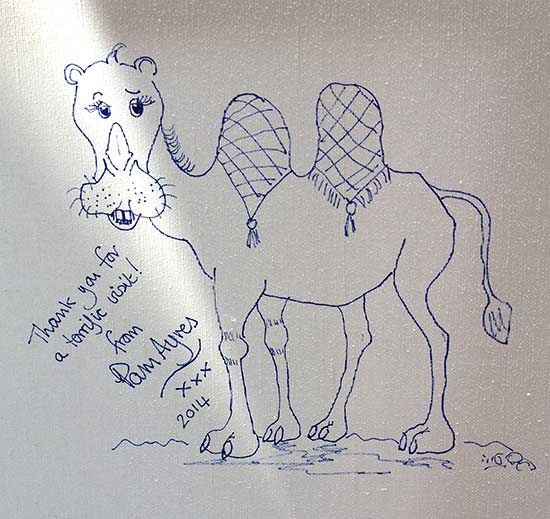 Thank you for
a terrific visit!
from
Pam Ayres
xxx
2014